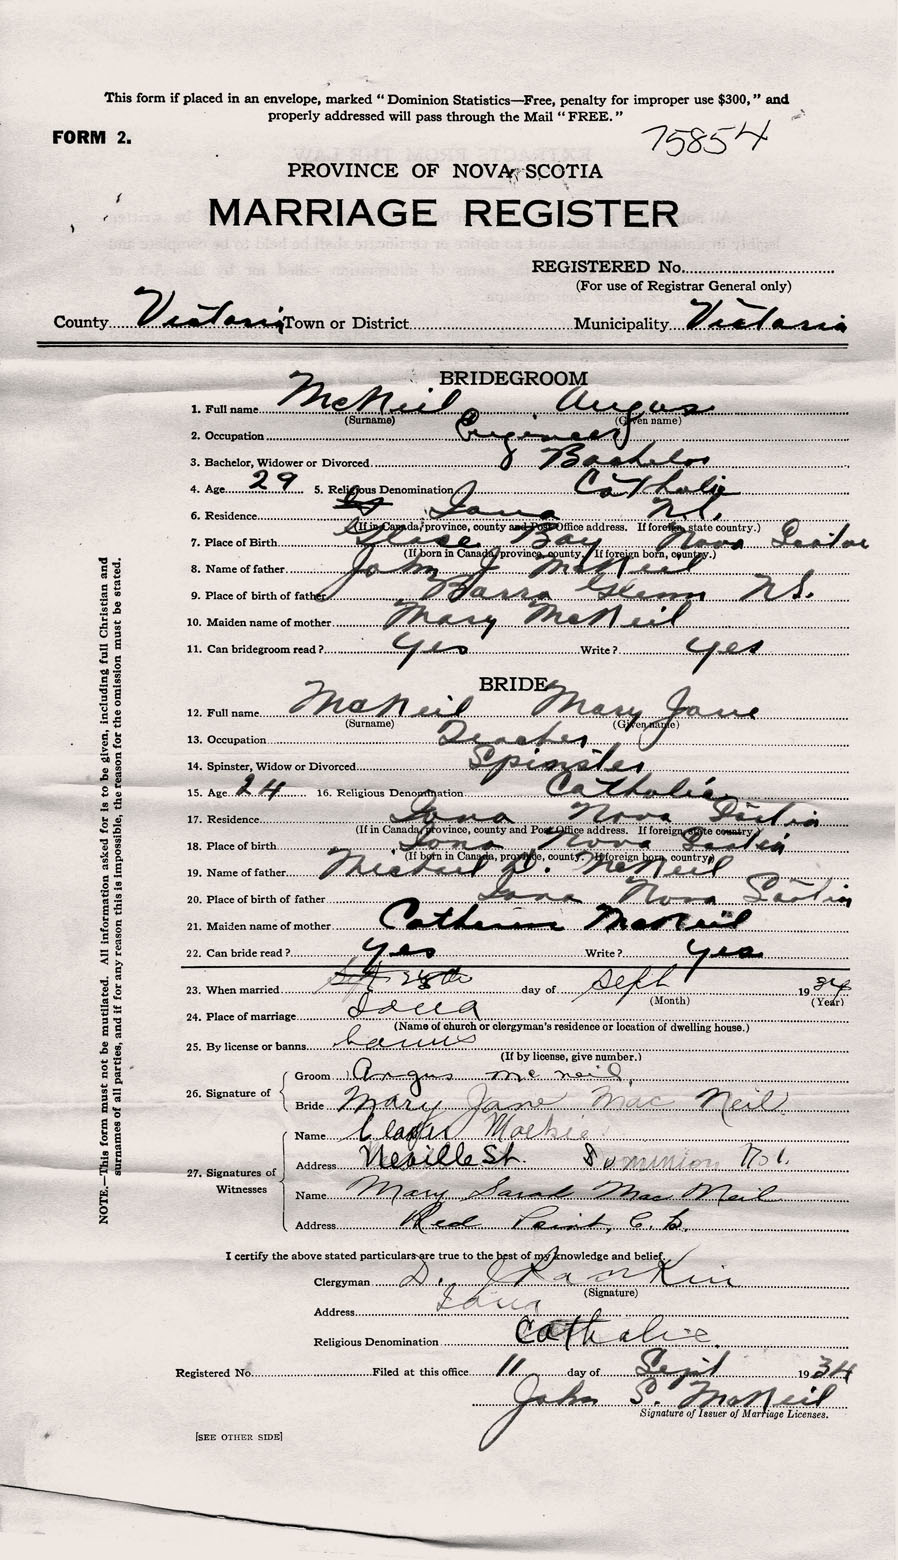 This form if placed in an envelope, marked “Dominion Statistics—Free, penalty for improper use $300,” and
properly addressed will pass through the Mail “FREE.”
FORM 2.
75854
PROVINCE OF NOVA SCOTIA
MARRIAGE REGISTER
REGISTERED No.
(For use of Registrar General only)
County Victoria Town or District Municipality Victoria
BRIDEGROOM
1. Full name McNeil Angus
(Surname) (Given name)
2. Occupation Engineer
3. Bachelor, Widower or Divorced Bachelor
4. Age 29 5. Religious Denomination Catholic
6. Residence Iona N.S.
(If in Canada, province, county and Post Office address. If foreign, state country.)
7. Place of Birth Glace Bay Nova Scotia
(If born in Canada, province, county. If foreign born, country.)
8. Name of father John J. McNeil
9. Place of birth of father Barra Glenn N.S.
10. Maiden name of mother Mary McNeil
11. Can bridegroom read? Yes Write? Yes
BRIDE
12. Full name McNeil Mary Jane
(Surname) (Given name)
13. Occupation Teacher
14. Spinster, Widow or Divorced Spinster
15. Age 24 16. Religious Denomination Catholic
17. Residence Iona Nova Scotia
(If in Canada, province, county and Post Office address. If foreign, state country.)
18. Place of birth Iona Nova Scotia
(If born in Canada, province, county. If foreign born, country)
19. Name of father Michael D. McNeil
20. Place of birth of father Iona Nova Scotia
21. Maiden name of mother Catherine McNeil
22. Can bride read? Yes Write? Yes
23. When married 28th day of Sept 1934
(Month) (Year)
24. Place of marriage Iona
(Name of church or clergyman’s residence or location of dwelling house.)
25. By license or banns banns
(If by license, give number.)
26. Signature of Groom Angus McNeil
Bride Mary Jane MacNeil
27. Signatures of Witnesses Name
Address Neville St. Dominion No 1.
Name Mary Sarah MacNeil
Address Red Point, C.B.
I certify the above stated particulars are true to the best of my knowledge and belief.
Clergyman D. J. Rankin
(Signature)
Address Iona
Religious Denomination Catholic
Registered No. Filed at this office 11 day of Sept 1934
John S. McNeil
Signature of Issuer of Marriage Licenses.
[SEE OTHER SIDE]
NOTE.—This form must not be mutilated. All information asked for is to be given, including full Christian and
surnames of all parties, and if for any reason this is impossible, the reason for the omission must be stated.